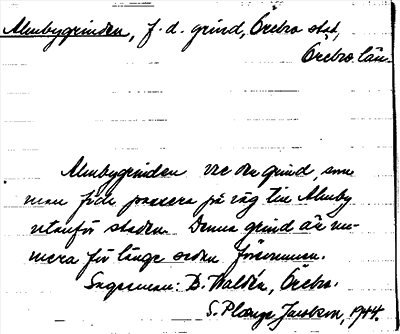 Almbygrinden, f.d. grind, Örebro stad,
Örebro län.
Almbygrinden var den grind, som
man fick passera på väg till Almby
utanför staden. Denna grind är nu-
mera för länge sedan försvunnen.
Sagesman: D. Waldén, Örebro.
S. Jacobson, 1944.